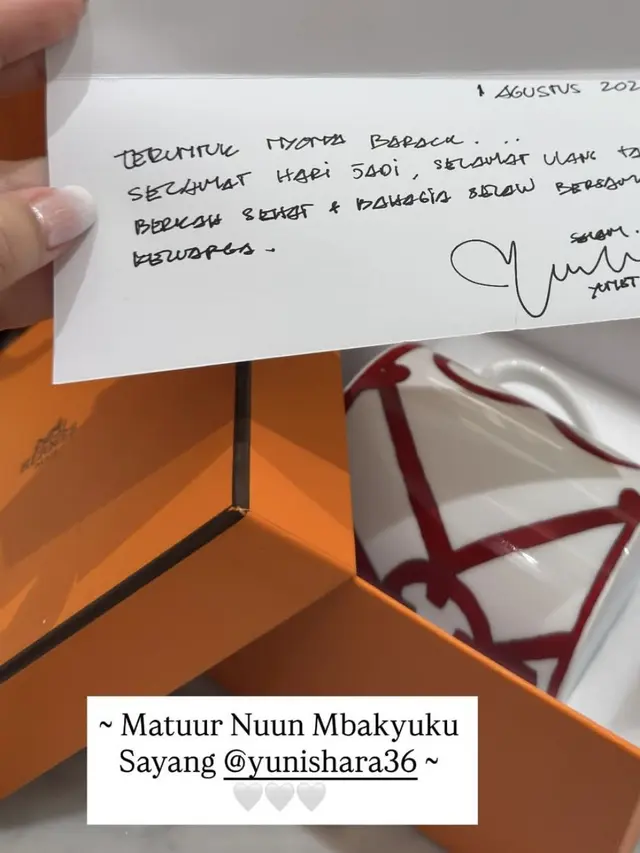 1 AGUSTUS 202
TERUNTUK NYONYA BARACK...
SELAMAT HARI JADI, SELAMAT ULANG TA
BERKAH SEHAT & BAHAGIA SELALU BERSAMA
KELUARGA.
SALAM.
YUNI
HERMES
~ Matuur Nuun Mbakyuku
Sayang @yunishara36 ~
🤍🤍🤍